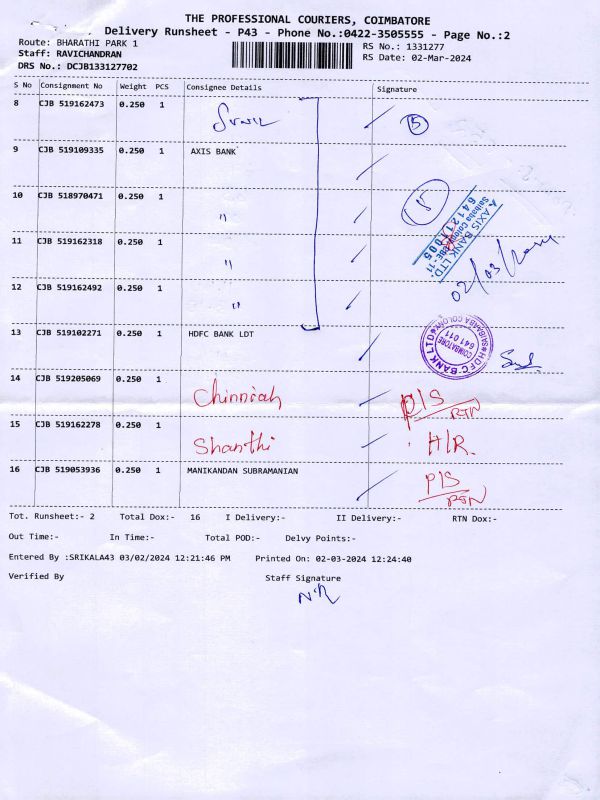 THE PROFESSIONAL COURIERS, COIMBATORE
Delivery Runsheet - P43 - Phone No.:0422-3505555 - Page No.:2
Route: BHARATHI PARK 1
RS No.: 1331277
Staff: RAVICHANDRAN
RS Date: 02-Mar-2024
DRS No.: DCJB133127702
S No Consignment No Weight PCS Consignee Details Signature
8 CJB 519162473 0.250 1
5
9 CJB 519109335 0.250 1 AXIS BANK
10 CJB 518970471 0.250 1 "
15
AXIS BANK LTD.
641 011
11 CJB 519162318 0.250 1 "
02/03/
12 CJB 519162492 0.250 1 "
13 CJB 519102271 0.250 1 HDFC BANK LDT
HDFC BANK LTD SAIBABA COLONY
COIMBATORE
641 011
14 CJB 519205069 0.250 1 Chinniah P/S
RTN
15 CJB 519162278 0.250 1 Shanthi H/R.
16 CJB 519053936 0.250 1 MANIKANDAN SUBRAMANIAN P/S
RTN
Tot. Runsheet:- 2 Total Dox:- 16 I Delivery:- II Delivery:- RTN Dox:-
Out Time:- In Time:- Total POD:- Delvy Points:-
Entered By :SRIKALA43 03/02/2024 12:21:46 PM Printed On: 02-03-2024 12:24:40
Verified By Staff Signature